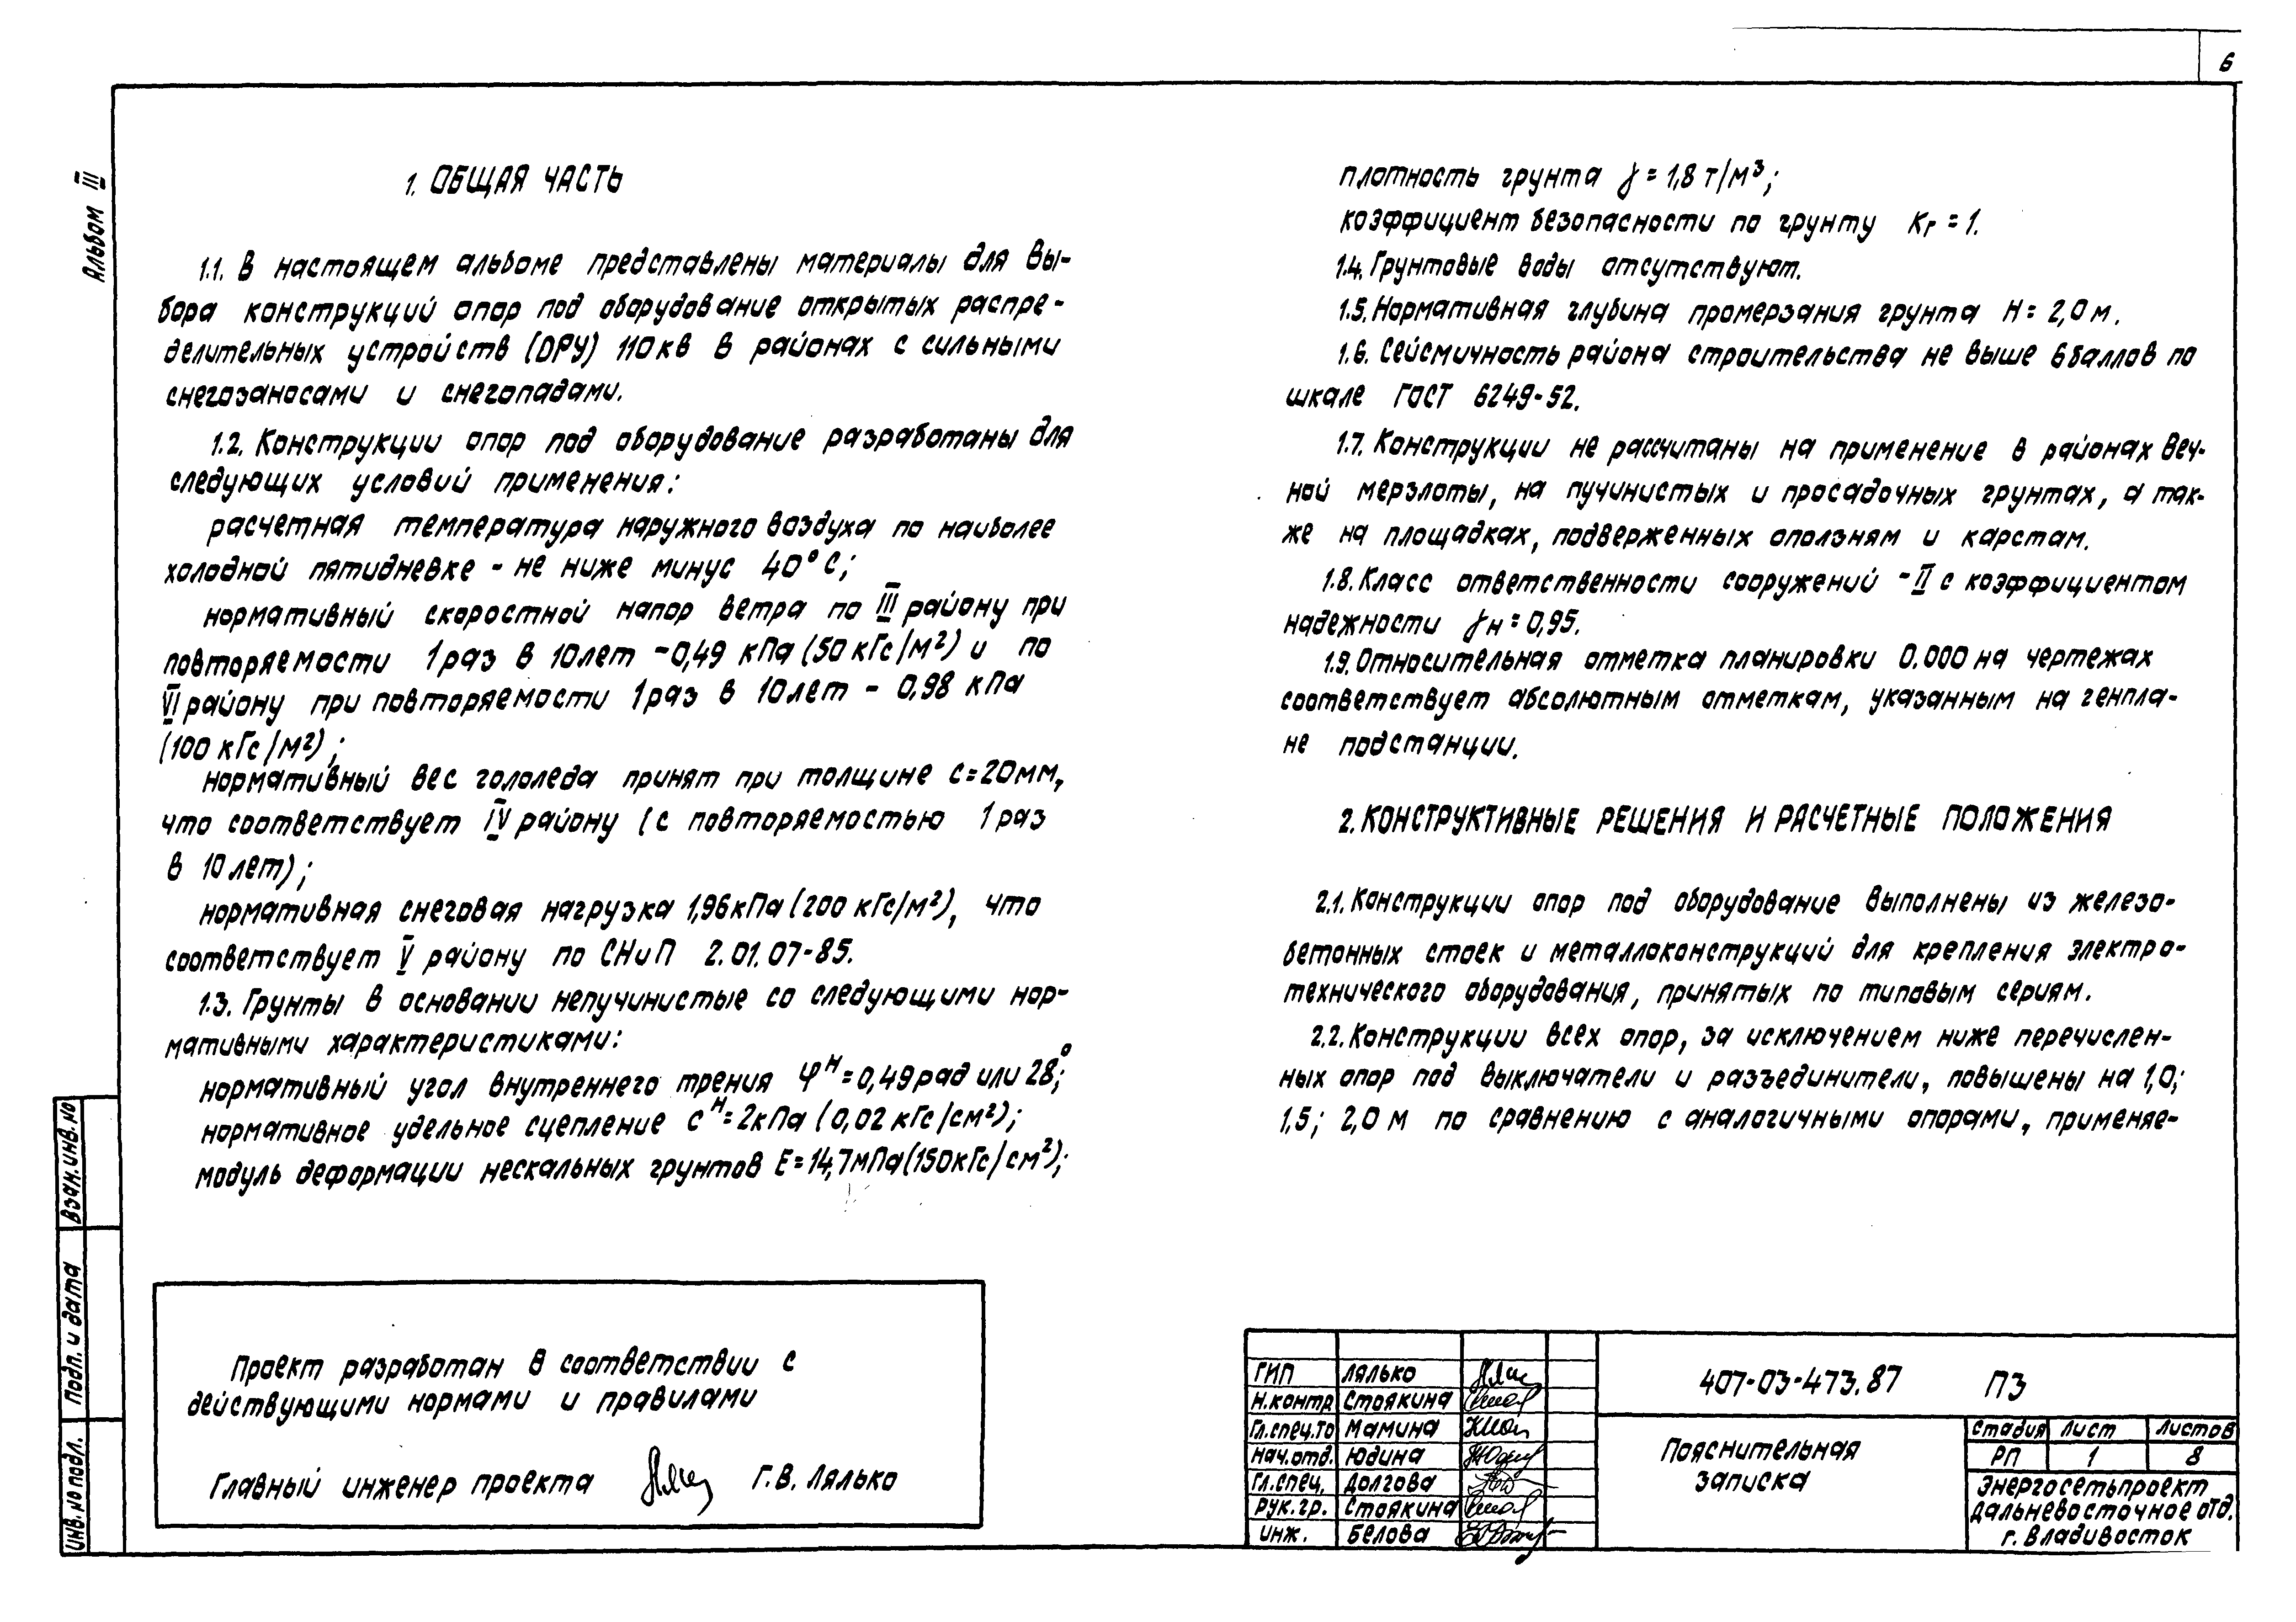 6
Альбом III
1. ОБЩАЯ ЧАСТЬ
1.1. В настоящем альбоме представлены материалы для вы-
бора конструкций опор под оборудование открытых распре-
делительных устройств (ОРУ) 110 кВ в районах с сильными
снегозаносами и снегопадами.
1.2. Конструкции опор под оборудование разработаны для
следующих условий применения:
расчетная температура наружного воздуха по наиболее
холодной пятидневке - не ниже минус 40°С;
нормативный скоростной напор ветра по III району при
повторяемости 1 раз в 10 лет - 0,49 кПа (50 кГс/м²) и по
VI району при повторяемости 1 раз в 10 лет - 0,98 кПа
(100 кГс/м²);
нормативный вес гололеда принят при толщине с=20мм,
что соответствует IV району (с повторяемостью 1 раз
в 10 лет);
нормативная снеговая нагрузка 1,96 кПа (200 кГс/м²), что
соответствует V району по СНиП 2.01.07-85.
1.3. Грунты в основании непучинистые со следующими нор-
мативными характеристиками:
нормативный угол внутреннего трения φᴴ=0,49 рад или 28°;
нормативное удельное сцепление сᴴ=2кПа (0,02 кГс/см²);
модуль деформации нескальных грунтов Е=14,7мПа(150кГс/см²);
плотность грунта γ=1,8 т/м³;
коэффициент безопасности по грунту Кг=1.
1.4. Грунтовые воды отсутствуют.
1.5. Нормативная глубина промерзания грунта Н=2,0 м.
1.6. Сейсмичность района строительства не выше 6 баллов по
шкале ГОСТ 6249-52.
1.7. Конструкции не рассчитаны на применение в районах веч-
ной мерзлоты, на пучинистых и просадочных грунтах, а так-
же на площадках, подверженных оползням и карстам.
1.8. Класс ответственности сооружений - II с коэффициентом
надежности γн=0,95.
1.9. Относительная отметка планировки 0.000 на чертежах
соответствует абсолютным отметкам, указанным на генпла-
не подстанции.
2. КОНСТРУКТИВНЫЕ РЕШЕНИЯ И РАСЧЕТНЫЕ ПОЛОЖЕНИЯ
2.1. Конструкции опор под оборудование выполнены из железо-
бетонных стоек и металлоконструкций для крепления электро-
технического оборудования, принятых по типовым сериям.
2.2. Конструкции всех опор, за исключением ниже перечислен-
ных опор под выключатели и разъединители, повышены на 1,0;
1,5; 2,0 м по сравнению с аналогичными опорами, применяе-
Проект разработан в соответствии с
действующими нормами и правилами
Главный инженер проекта Г.В. Лялько
Взам.инв.№
Подп. и дата
Инв.№ подл.
ГИП Лялько
Н.контр Стоякина
Гл.спец.ТО Мамина
Нач.отд. Юдина
Гл.спец. Долгова
Рук.гр. Стоякина
Инж. Белова
407-03-473.87 ПЗ
Пояснительная
записка
Стадия Лист Листов
РП 1 8
Энергосетьпроект
Дальневосточное отд.
г. Владивосток